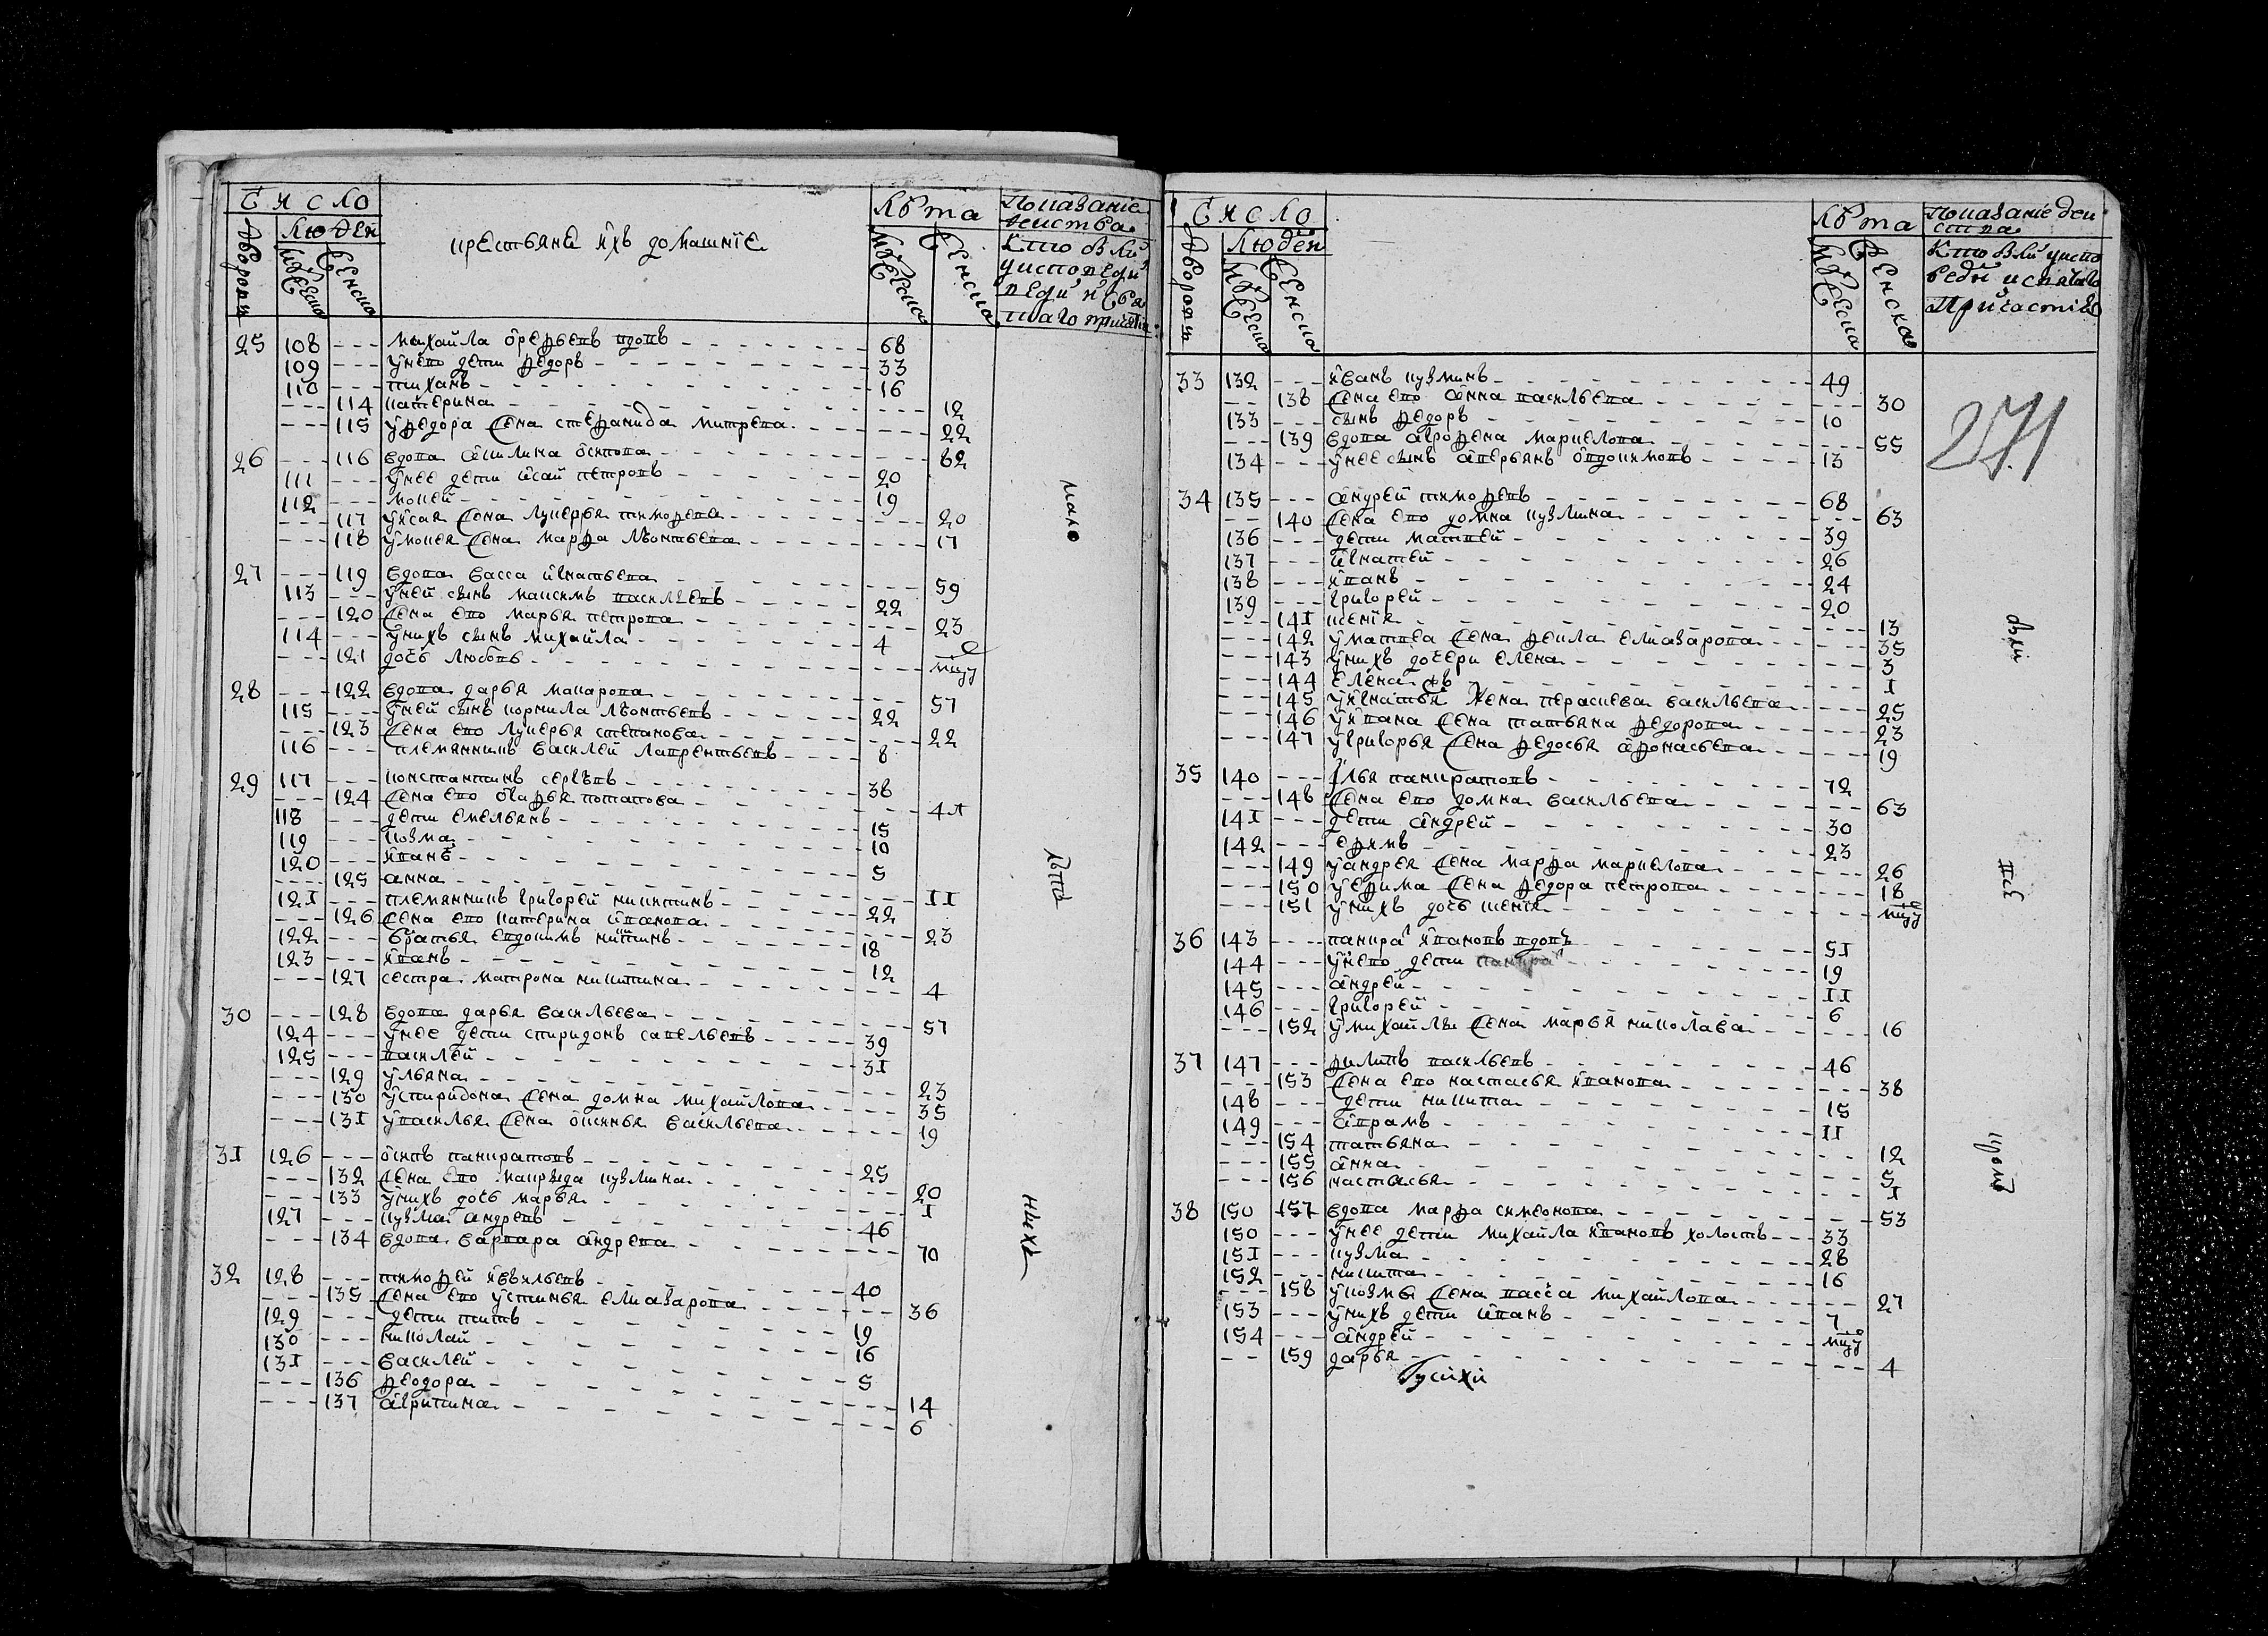 Число
Людей
крестьяне ихъ домашние
Лѣта
Показание
действа
25 108 --- михайла ореѳьевъ вдовъ 68
109 --- унево дети ѳедоръ 33
110 --- тиханъ 16
--- 114 катерина 12
--- 115 уѳедора жена стеѳанида митрева 22
26 --- 116 вдова акилина осипова 62
111 --- унее дети исай петровъ 20
112 --- мокей 19
--- 117 уисая жена лукерья тимоѳева 20
--- 118 умокея жена марѳа лѣонтьева 17
27 --- 119 вдова васса игнатьева 59
113 --- уней сынъ максимъ васильевъ 22
--- 120 жена ево марья петрова 23
114 --- унихъ сынъ михайла 4
--- 121 дочь любовь
28 --- 122 вдова дарья макарова 57
115 --- уней сынъ корнила лѣонтьевъ 22
--- 123 жена ево лукерья степанова 22
116 --- племянникъ василей лаврентьевъ 8
29 117 --- константинъ сергѣевъ 38
--- 124 жена ево агаѳья потапова
118 --- дети емельянъ 15
119 --- козма 10
120 --- иванъ 5
--- 125 анна II
12I --- племянникъ григорей никитинъ 22
--- 126 жена ево катерина иванова 23
122 --- братья евдокимъ 18
123 --- иванъ 12
--- 127 сестра матрона никитина 4
30 --- 128 вдова дарья васильева 57
124 --- унее дети спиридонъ савельевъ 39
125 --- василей 3I
--- 129 ульяна 23
--- 130 успиридона жена домна михайлова 35
--- 13I увасилья жена оксинья васильева 19
3I 126 --- осипъ панкратовъ 25
--- 132 жена ево макрида кузмина 20
--- 133 унихъ дочь марья I
127 --- кузма андревъ 46
--- 134 вдова варвара андрева 70
32 128 --- тимоѳей 40
--- 135 жена ево устинья елиазарова 36
129 --- дети титъ 19
130 --- николай 16
13I --- василей 5
--- 136 ѳеодора 14
--- 137 агрипина 6
мало
лѣтн
ныхъ
Число
Людей
Лѣта
Показание деи
ства
33 132 --- иванъ кузминъ 49
--- 138 жена ево анна васильева 30
133 --- сынъ ѳедоръ 10
--- 139 вдова аѳроѳена маркелова 55
134 --- унее сынъ аверьянъ овдокимовъ 13
34 135 --- андрей тимоѳевъ 68
--- 140 жена ево домна кузмина 63
136 --- дети матвей 39
137 --- игнатей 26
138 --- иванъ 24
139 --- григорей 20
--- 14I ксенія 13
--- 142 уматвеа жена ѳекла елиазарова 35
--- 143 унихъ дочери елена 3
--- 144 елена I
--- 145 уигнатья жена параскева васильева 25
--- 146 уивана жена татьяна ѳедорова 23
--- 147 угригорья жена ѳедосья аѳонасьева 19
35 140 --- илья панкратовъ 72
--- 148 жена ево домна васильева 63
14I --- дети андрей 30
142 --- еѳимъ 23
--- 149 уандрея жена марѳа маркелова 26
--- 150 уеѳима жена ѳедора петрова 18
--- 151 унихъ дочь ксенія
36 143 --- панкра ивановъ вдовъ 5I
144 --- унево дети 19
145 --- андрей II
146 --- григорей 6
--- 152 умихайлы жена марья николаева 16
37 147 --- ѳилипъ васильевъ 46
--- 153 жена ево настасья иванова 38
148 --- дети никита 15
149 --- аврамъ II
--- 154 татьяна 12
--- 155 анна 5
--- 156 настасья I
38 150 157 вдова марѳа симеонова 53
150 --- унее дети михайла ивановъ холостъ 33
15I --- кузма 28
152 --- никита 16
--- 158 укозмы жена васса михайлова 27
153 --- унихъ дети иванъ 7
154 --- андрей
--- 159 дарья 4
271